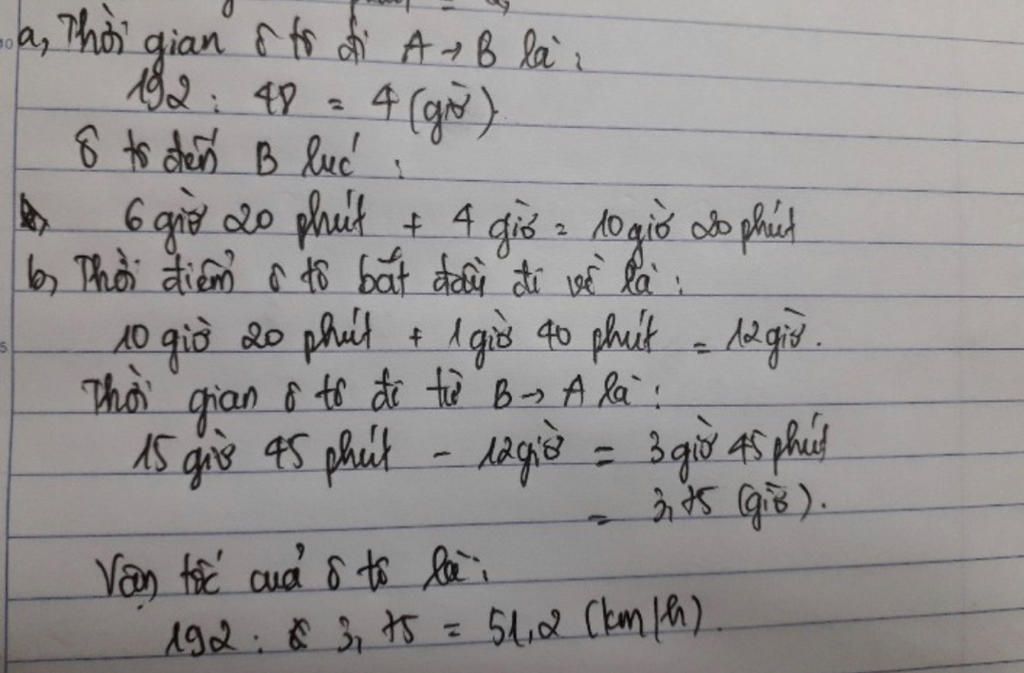 a, Thời gian ô tô đi A → B là:
192 : 48 = 4 (giờ)
ô tô đến B lúc:
6 giờ 20 phút + 4 giờ = 10 giờ 20 phút
b, Thời điểm ô tô bắt đầu đi về là:
10 giờ 20 phút + 1 giờ 40 phút = 12 giờ.
Thời gian ô tô đi từ B → A là:
15 giờ 45 phút - 12 giờ = 3 giờ 45 phút
= 3,75 (giờ).
Vận tốc cuả ô tô là:
192 : 3,75 = 51,2 (km/h)